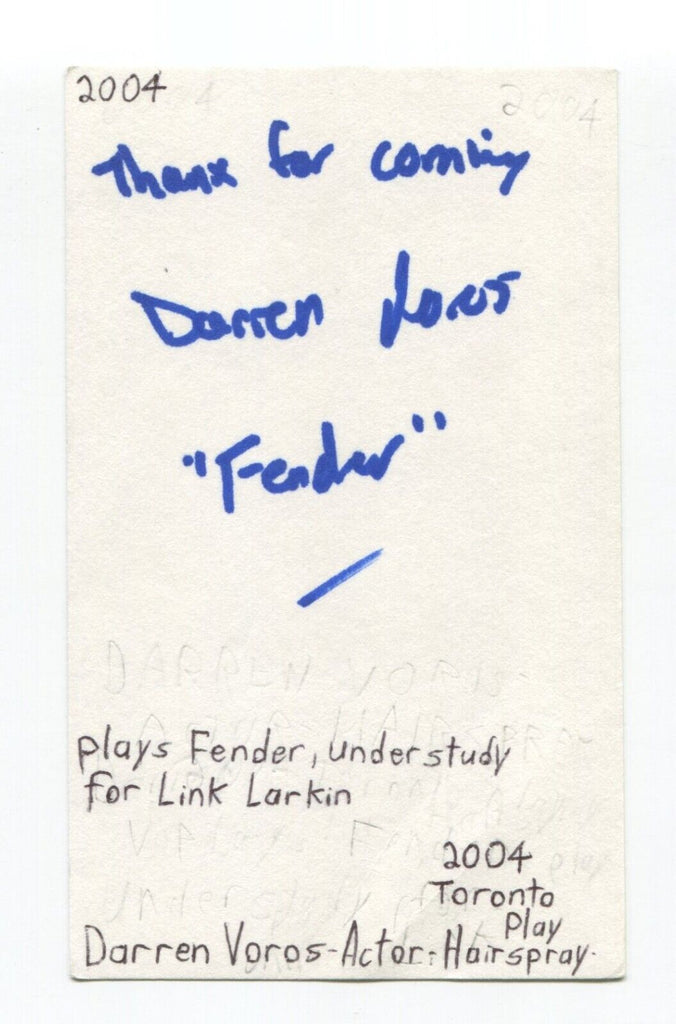 2004
2004
Thanx for coming
Darren Voros
"Fender"
DARREN VORIS-
plays Fender, understudy
for Link Larkin
2004
Toronto
Play
Darren Voros-Actor: Hairspray.